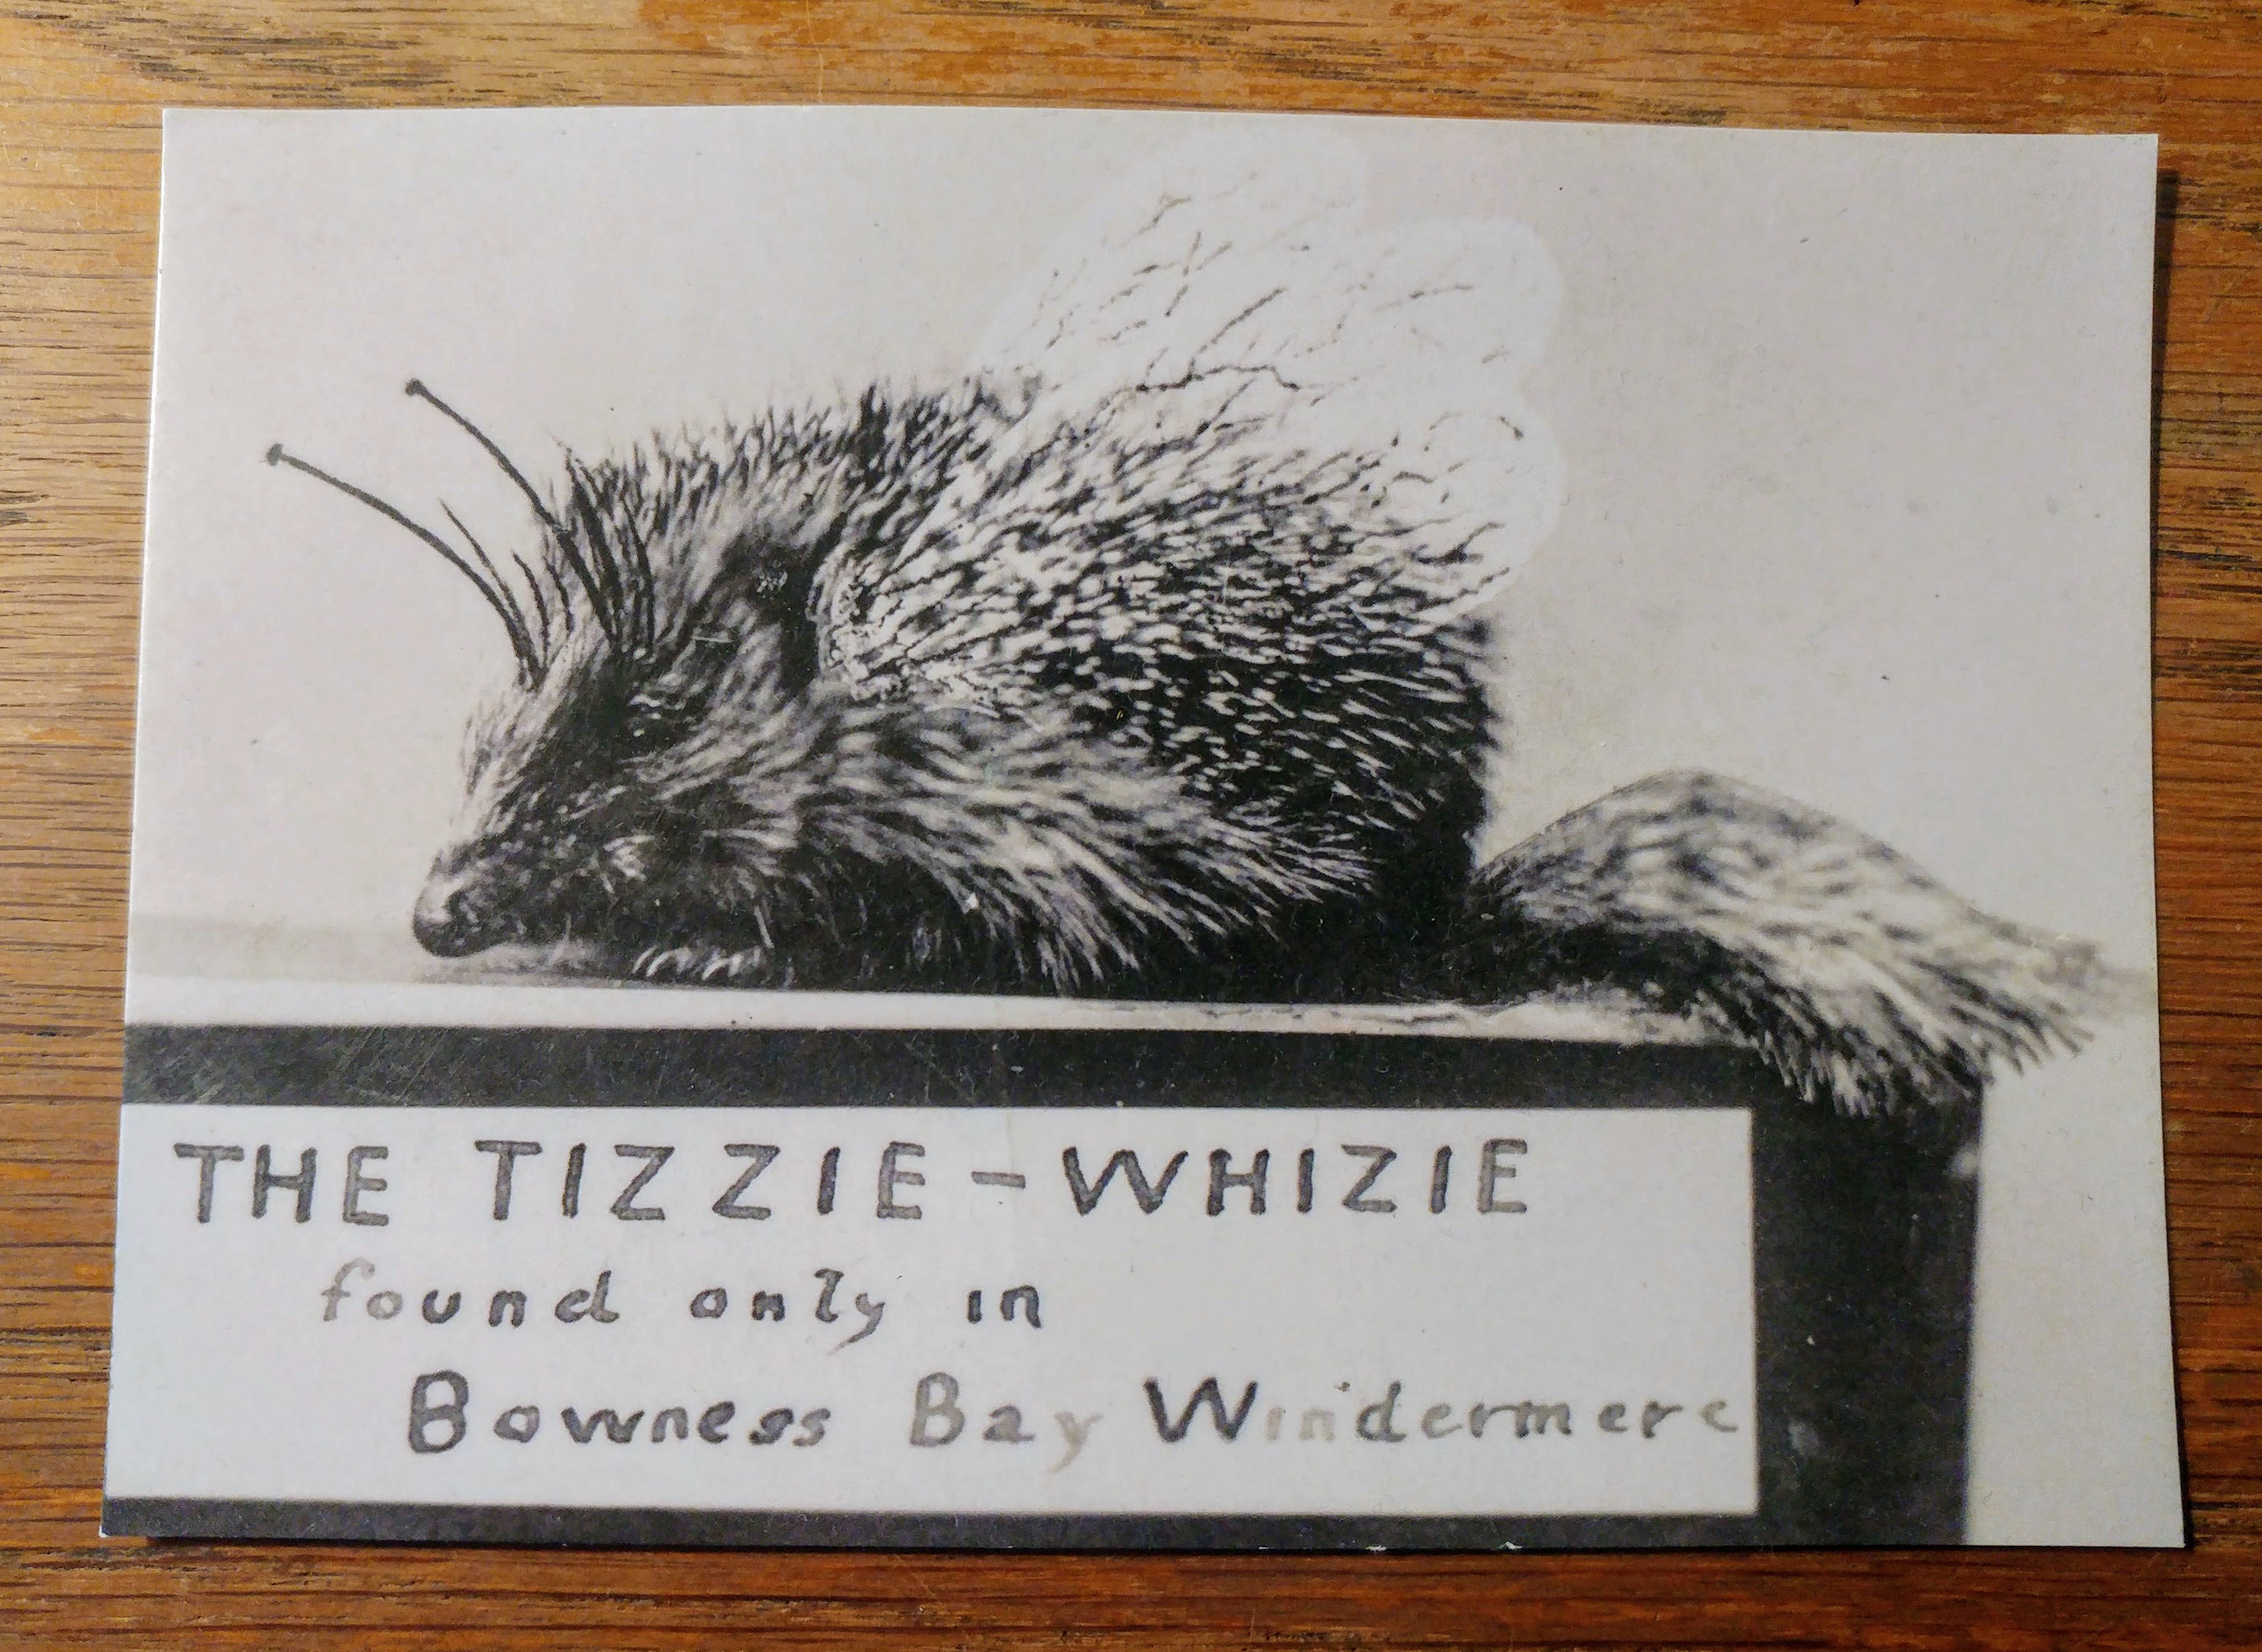 THE TIZZIE-WHIZIE
found only in
Bowness Bay Windermere